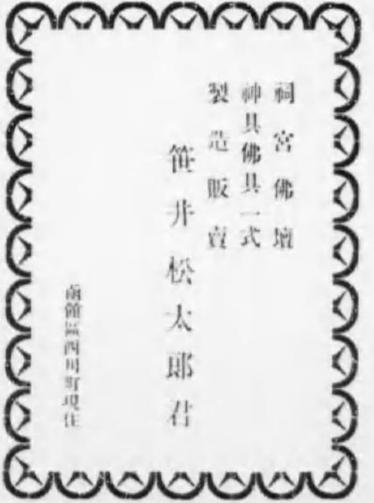 祠宮佛壇
神具佛具一式
製造販賣
笹井松太郎君
函館區西川町現住